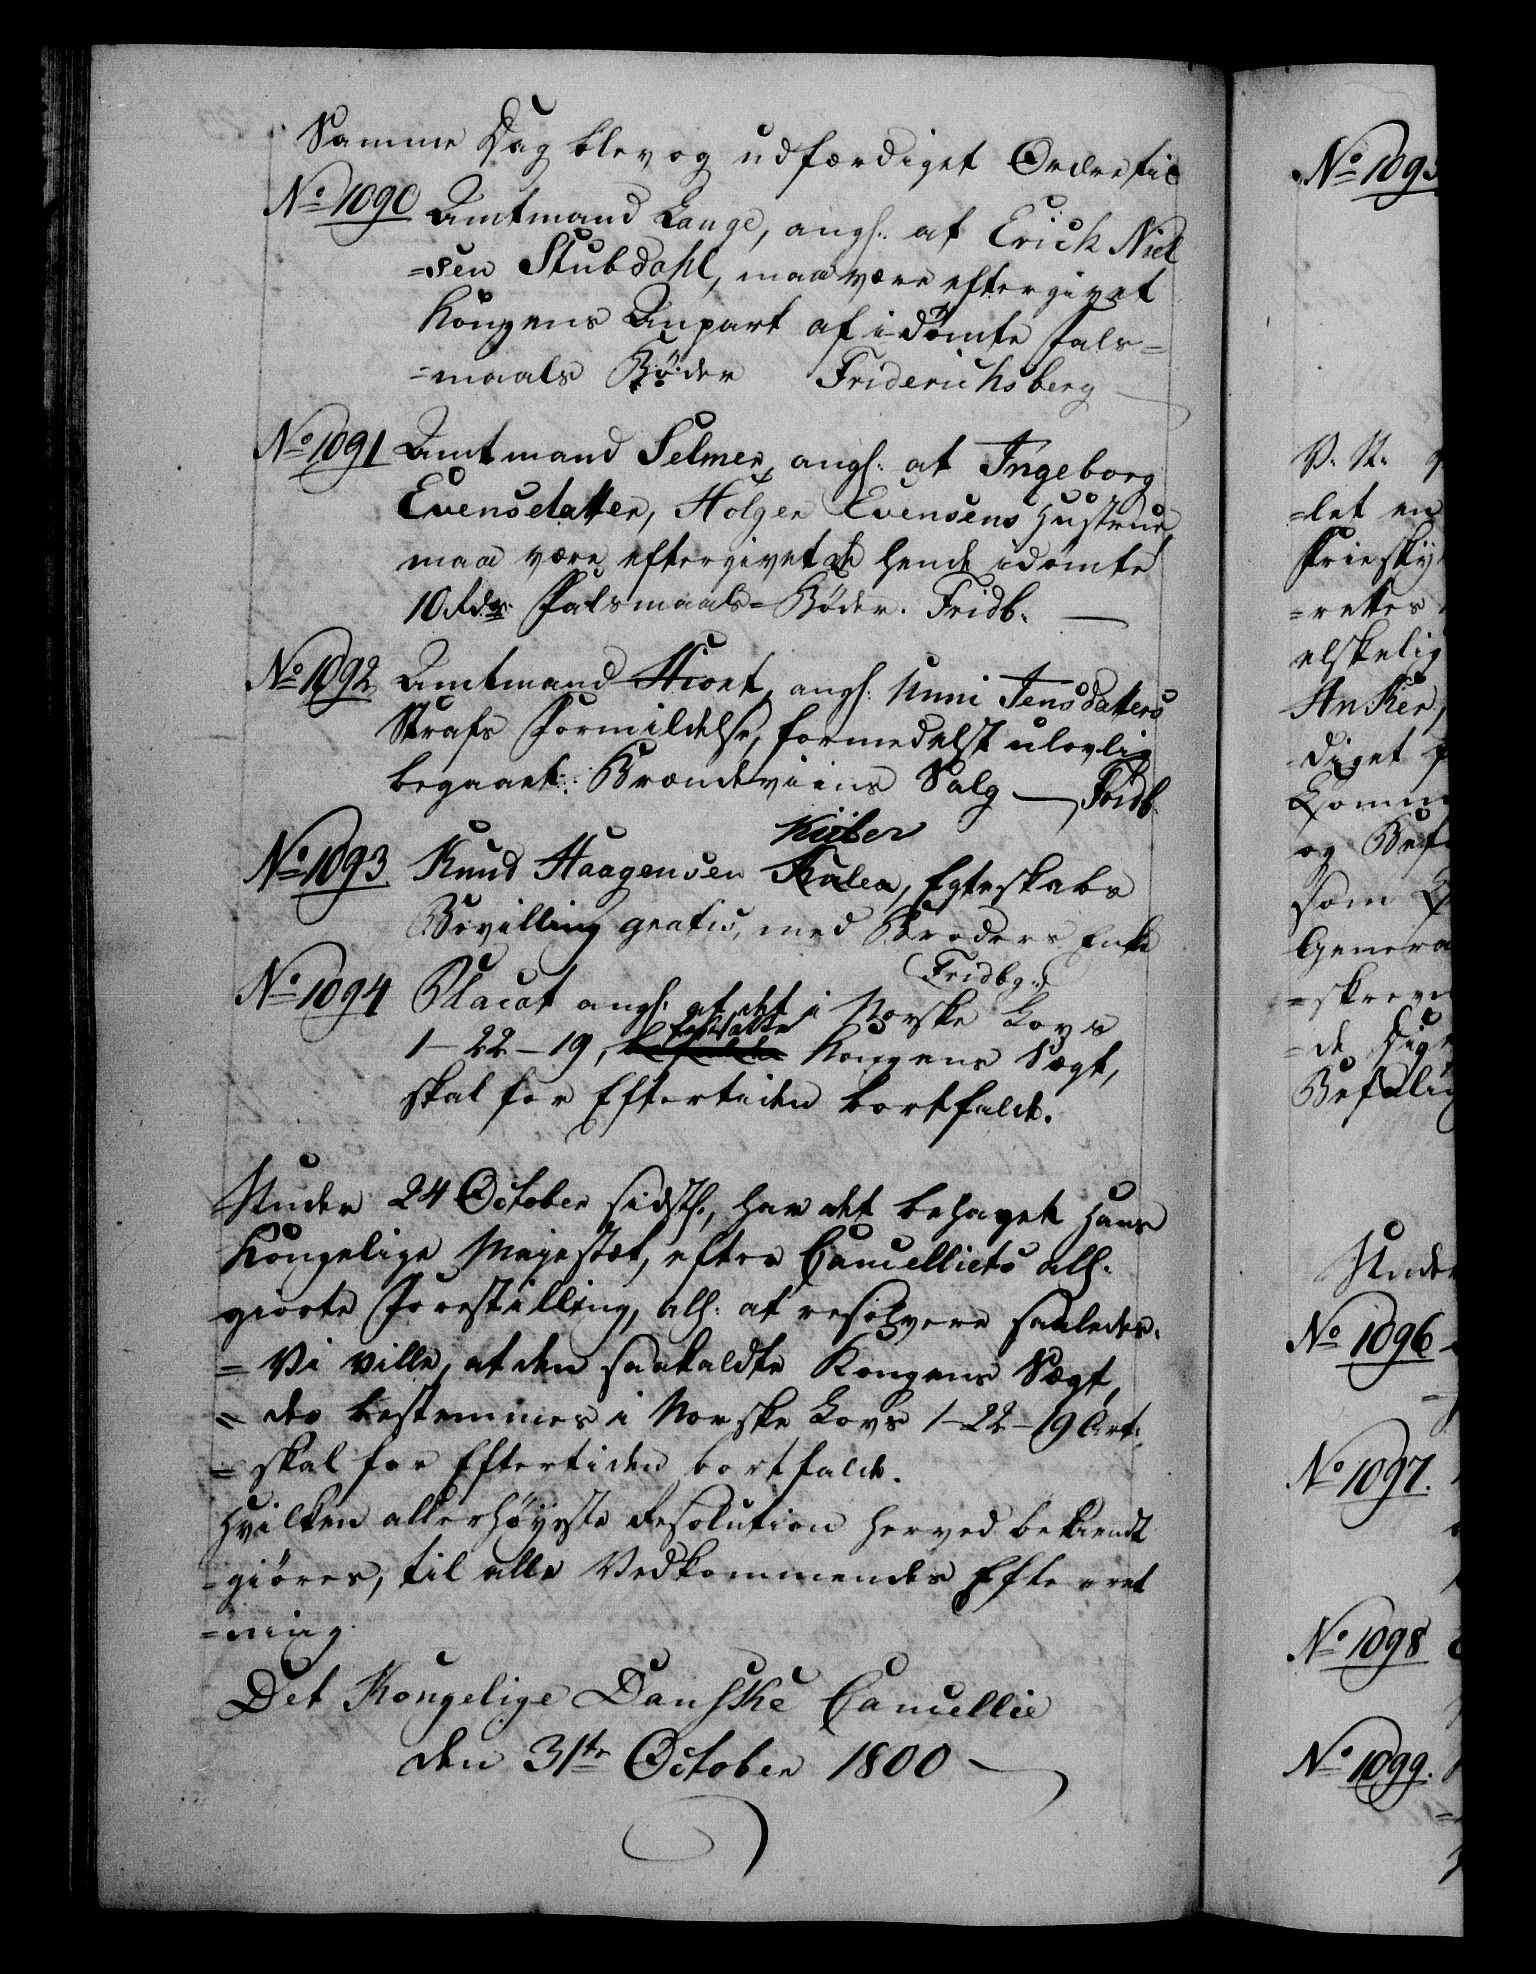 Samme Dag blev og udfærdiget Ordre til
No 1090 Amtmand Lange, angl. at Erich Niel
=sen Stubdahl, maa være eftergivet
Kongens Anpart af idømte Fals=
=maals Bøder Friderichsberg
No 1091 Amtmand Selmer, angl. at Ingeborg
Evensdatter, Holger Evensens Hustrue,
maa være eftergivet de hende idømte
10 Rdr. Falsmaals=Bøder. Fridb.
No 1092 Amtmand Hiort, angl. Unni Jensdatters
Strafs Formildelse, formedelst ulovlig
begaaet Brændeviins Salg — Fridb.
Kulien
No 1093 Knud Haagensen Kulea, Egteskabs
Bevilling gratis, med Broders Enke
(Fridbg.)
No 1094 Placat angl. at det i Norske Lovs
fastsatte
1-22-19, Kongens Vægt,
skal for Eftertiden bortfalde.
Under 24 October sidstl., har det behaget Hans
Kongelige Majestæt, efter Cancelliets all.
giorte Forestilling, all. at resolvere saaledes:
= Vi ville, at den saakaldte Kongens Vægt,
= der bestemmes i Norske Lovs 1-22-19 Art:
= skal for Eftertiden bortfalde.
Hvilken allerhøyeste Resolution herved bekiendt
=giøres, til alle Vedkommendes Efterret
=ning.
Det Kongelige Danske Cancellie
den 31te October 1800
No 1095
P. N.
=let en
=rettes
elskelig
Anker,
diget
og Bef
som
Genera
=skreve
=de Dig
Befalin
Under
No 1096
No 1097.
No 1098
No 1099.